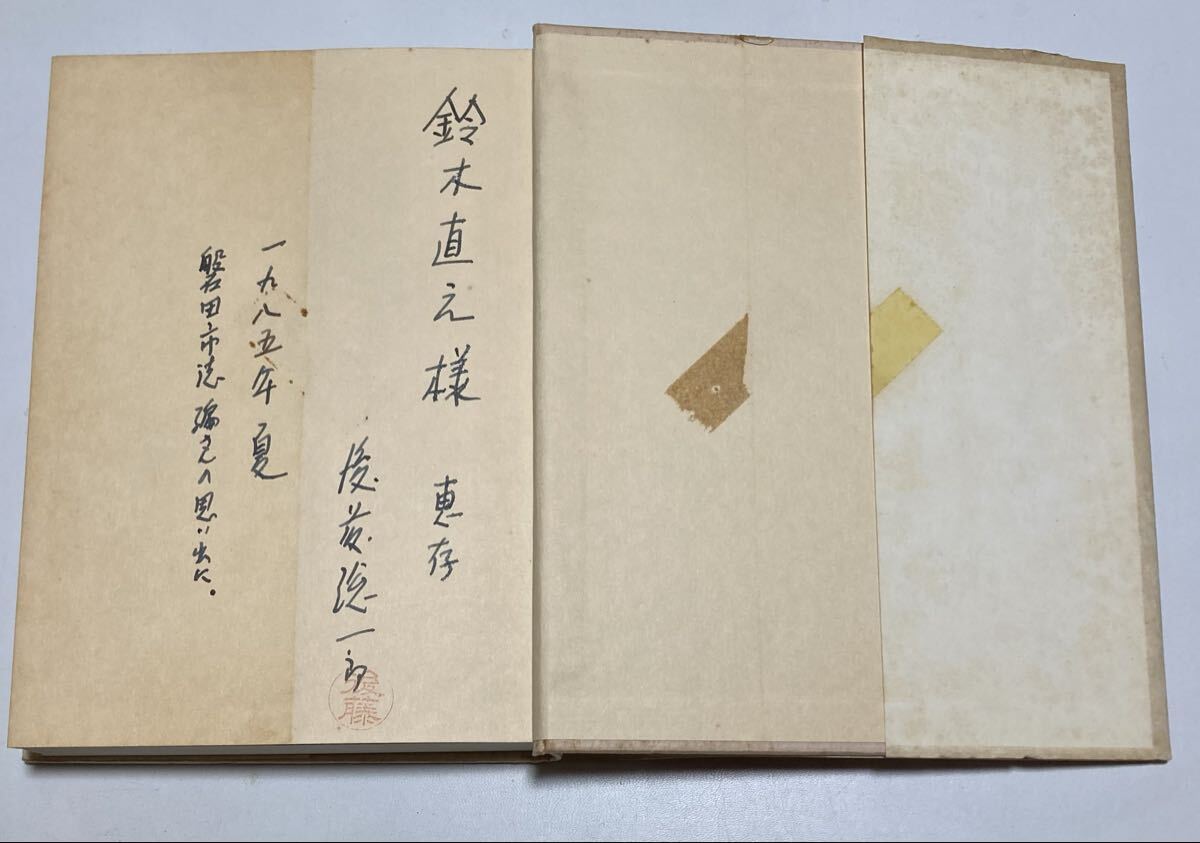 鈴木直之様 恵存
後藤総一郎
後藤
一九八五年 夏
磐田市誌 編さんの思い出に。